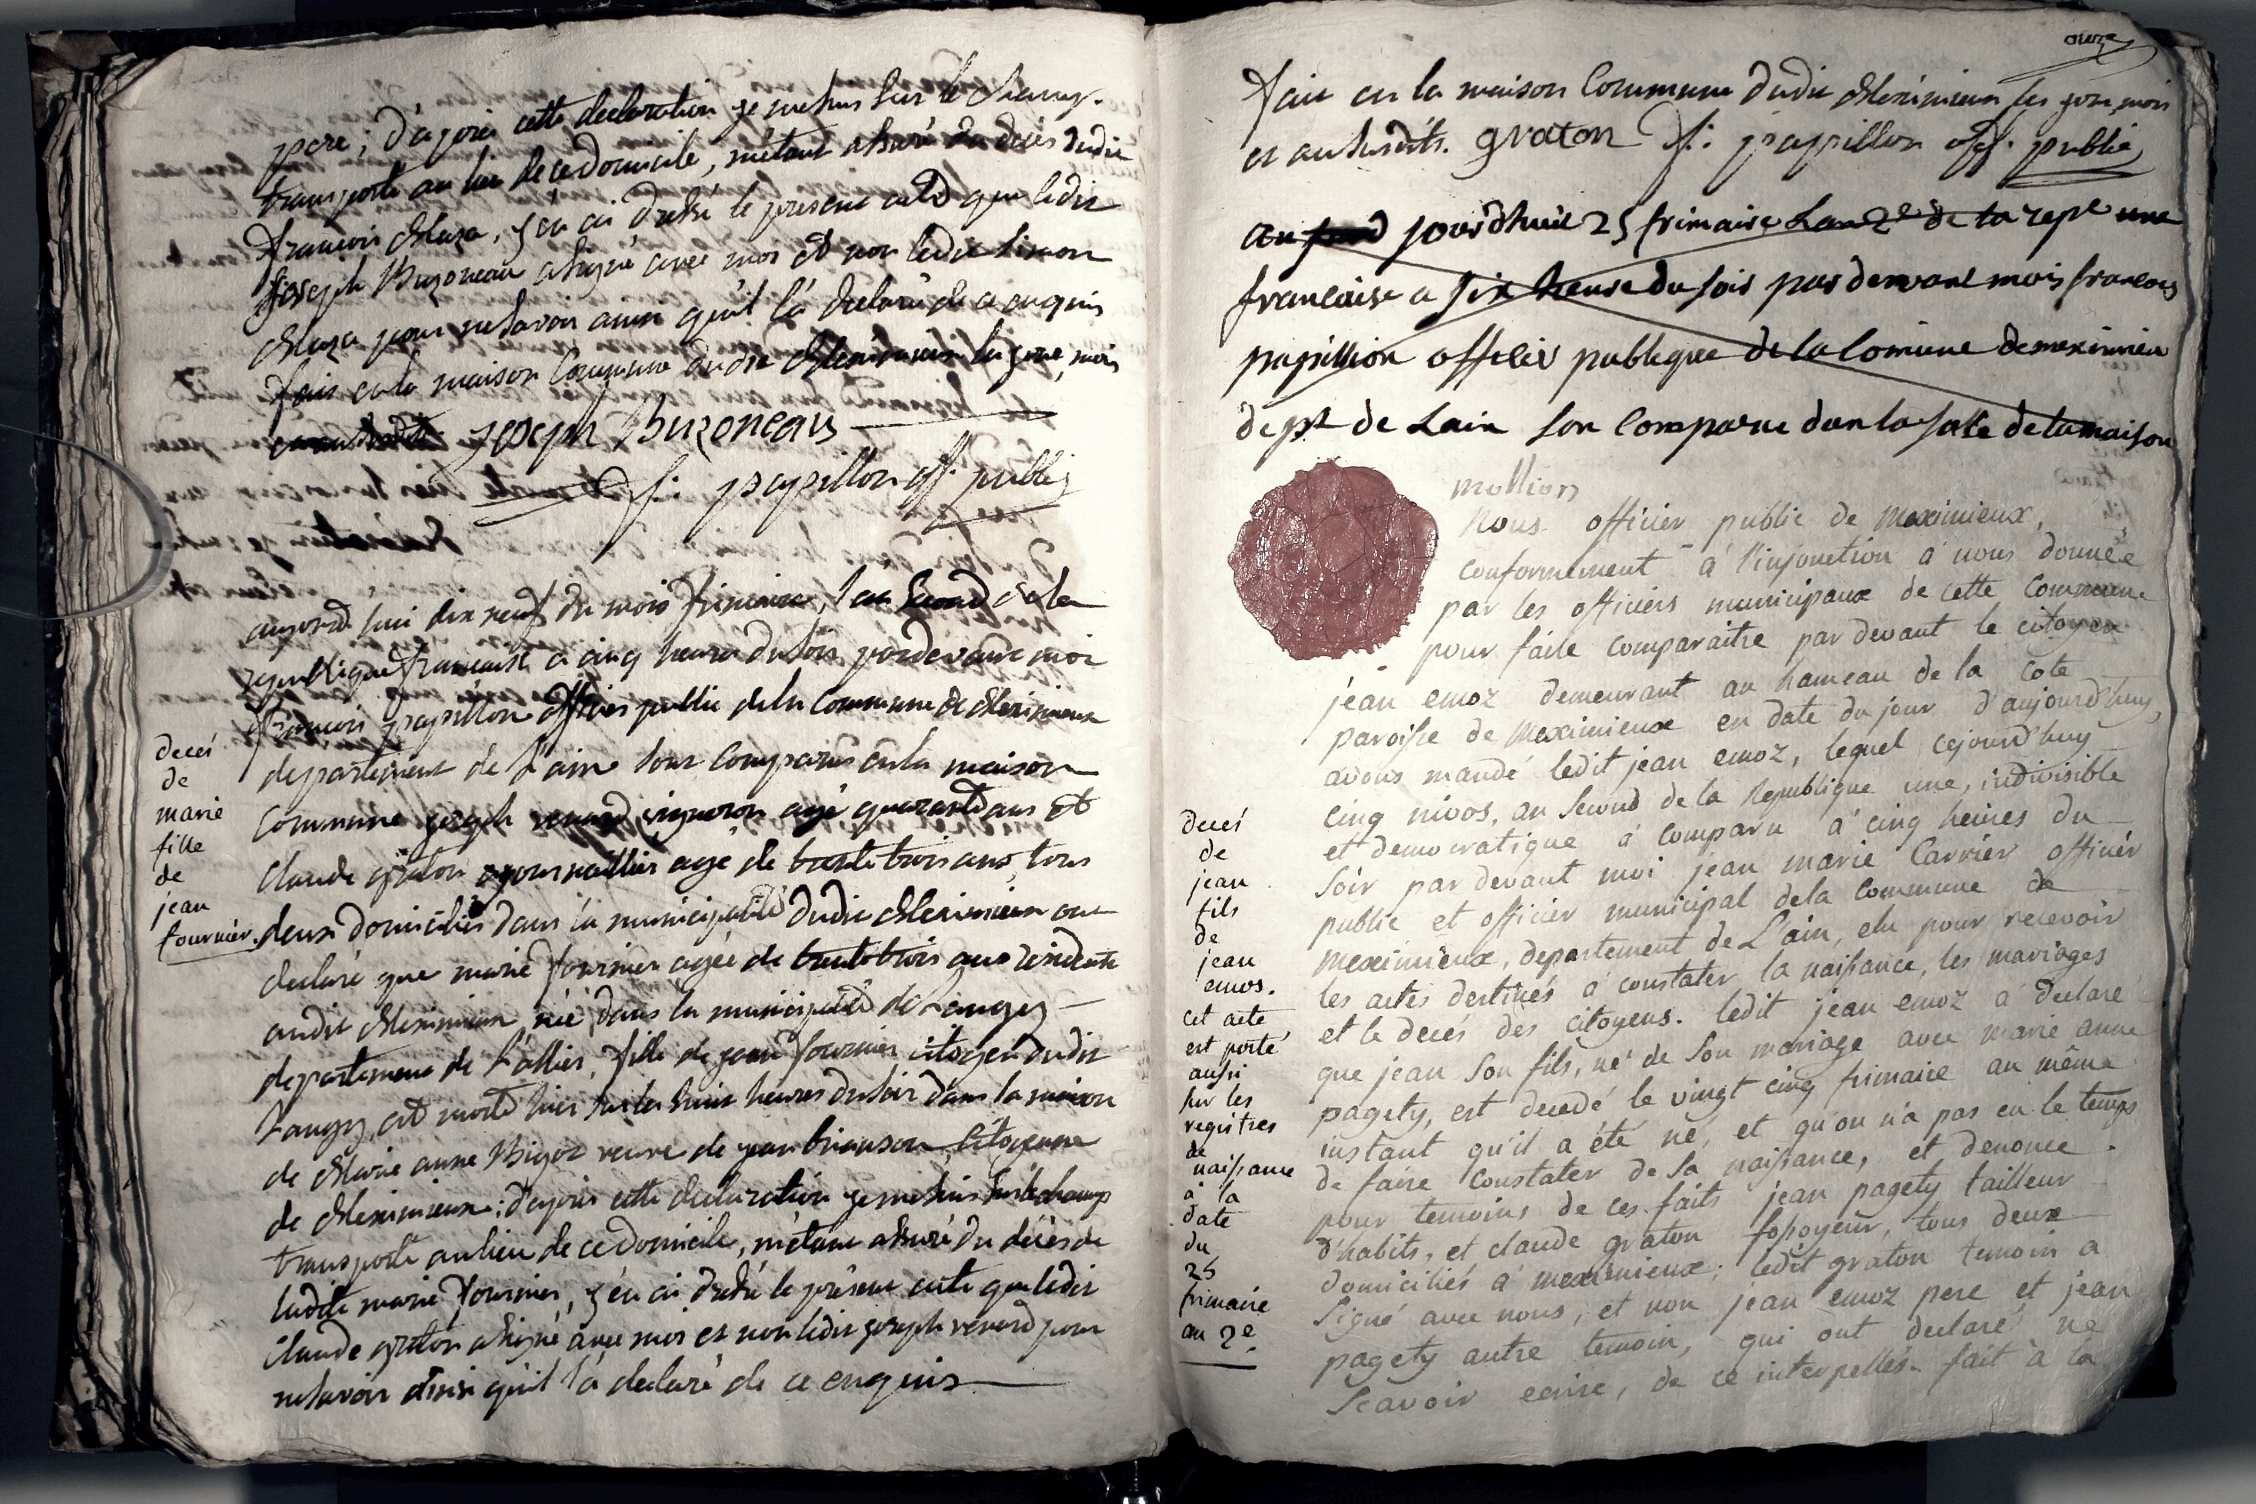 pere; d'après cette declaration je me suis sur le champ
transporté au lieu de ce domicile, m'étant assuré du décès dudit
françois Maza, j'en ai dressé le présent acte que ledit
joseph Buzoneau a signé avec moi et non ledit simon
Maza pour ne savoir ainsi qu'il l'a declaré de ce enquis
fait en la maison Commune dudit Meximieux les jour, mois
et an susdits. joseph Buzoneau
f: papillon off. public
aujourd'hui dix neuf du mois frimaire, l'an second de la
republique française a cinq heures du soir pardevant moi
françois papillon officier public de la Commune de Meximieux
departement de l'ain sont comparus en la maison
Commune joseph renard vigneron agé quarante ans et
Claude graton journaillier agé de trente trois ans, tous
deux domiciliés dans la municipalité dudit Meximieux ont
declaré que marie fournier agée de trente trois ans residente
audit Meximieux née dans la municipalité de Langy
departement de l'allier, fille de jean fournier citoyen dudit
Langy, est morte hier sur les huit heures du soir dans la maison
de Marie anne Bigot veuve de jean brianson, citoyenne
de Meximieux; d'après cette declaration je me suis sur le champ
transporté au lieu de ce domicile, m'étant assuré du décès de
ladite marie fournier, j'en ai dressé le présent acte que ledit
Claude graton a signé avec moi et non ledit joseph renard pour
ne savoir ainsi qu'il l'a declaré de ce enquis
decés
de
marie
fille
de
jean
fournier.
onze
fait en la maison Commune dudit Meximieux les jour, mois
et an susdits. graton f: papillon off. public
au jourdhuit 25 frimaire Lan 2e de la repe une
francaise a six heure du soir par dervant mois francois
papillion officier publique de la Comune de meximieu
dept de Lain son Comparue dan la salle de la maison
mollion
Nous officier public de Meximieux,
conformement à l'injonction à nous donnée
par les officiers municipaux de cette commune
pour faire comparaitre par devant le citoyen
jean emoz demeurant au hameau de la cote
paroisse de Meximieux en date du jour d'aujourd'huy,
avons mandé ledit jean emoz, lequel cejourd'huy
cinq nivos, an second de la Republique une, indivisible
et democratique à comparu à cinq heures du
soir par devant moi jean marie Carrier officier
public et officier municipal de la commune de
Meximieux, departement de L'ain, elu pour recevoir
les actes destinés à constater la naissance, les mariages
et le decés des citoyens. ledit jean emoz à declaré
que jean son fils, né de son mariage avec marie anne
pagety, est decedé le vingt cinq frimaire au même
instant qu'il a été né, et qu'on n'a pas eu le temps
de faire constater de sa naissance, et denonce
pour temoins de ces faits jean pagety tailleur
d'habits, et claude graton fossoyeur, tous deux
domiciliés à Meximieux; ledit graton temoin a
signé avec nous, et non jean emoz pere et jean
pagety autre temoin, qui ont declaré ne
scavoir ecrire, de ce interpellés. fait à la
decés
de
jean
fils
de
jean
emos.
cet acte
est porté
aussi
sur les
registres
de
naissance
à la
date
du
25
frimaire
an 2e.